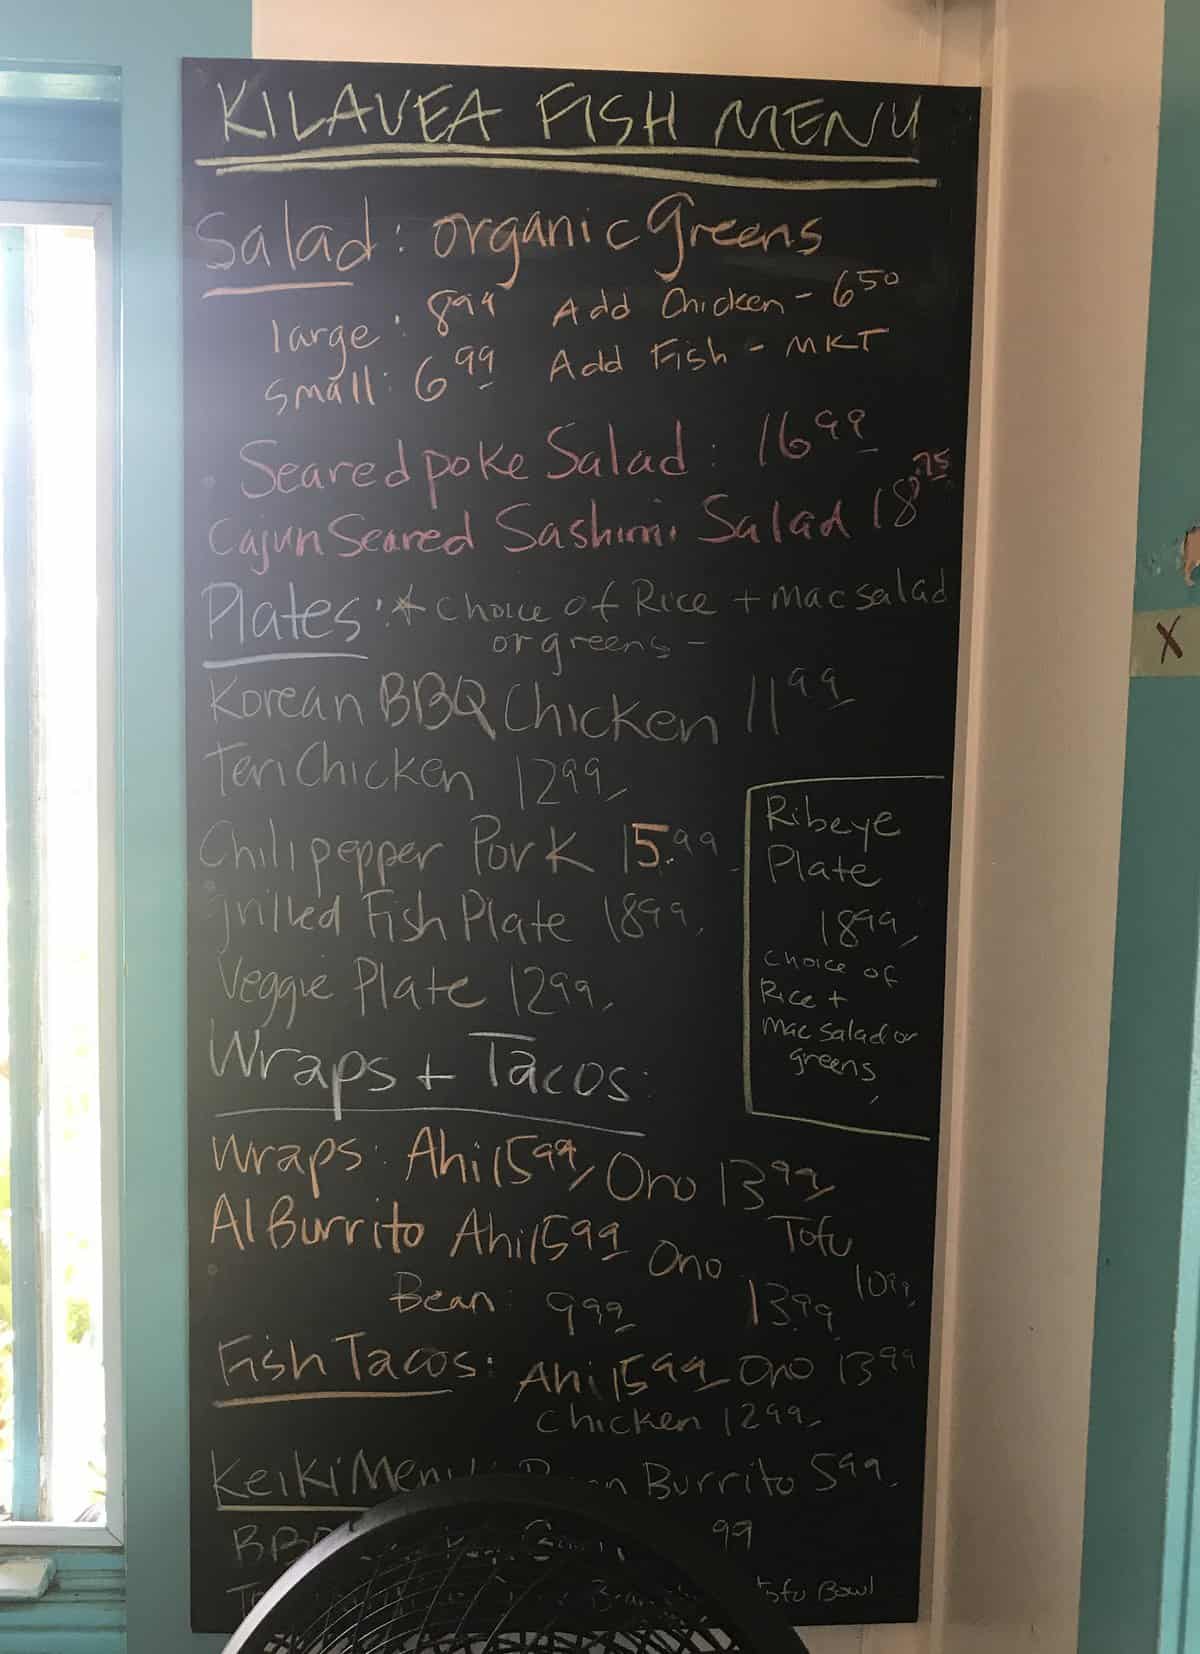 KILAVEA FISH MENU
Salad: organic greens
large: 8 99 Add Chicken - 6 50
small: 6 99 Add Fish - MKT
Seared poke Salad: 16 99
Cajun Seared Sashimi Salad 18.75
Plates: * Choice of Rice + mac salad
or greens -
Korean BBQ Chicken 11 99
Teri Chicken 12 99
Chili pepper Pork 15.99
grilled Fish Plate 18 99
Veggie Plate 12 99
Ribeye
Plate
18 99
choice of
Rice +
Mac Salad or
greens
Wraps + Tacos:
Wraps: Ahi 15 99 Ono 13 99
Tofu
10 99
Al Burrito Ahi 15 99 Ono
13 99
Bean: 9 99
Fish Tacos: Ahi 15 99 Ono 13 99
Chicken 12 99
Keiki Menu Burrito 5 99
99
Bowl